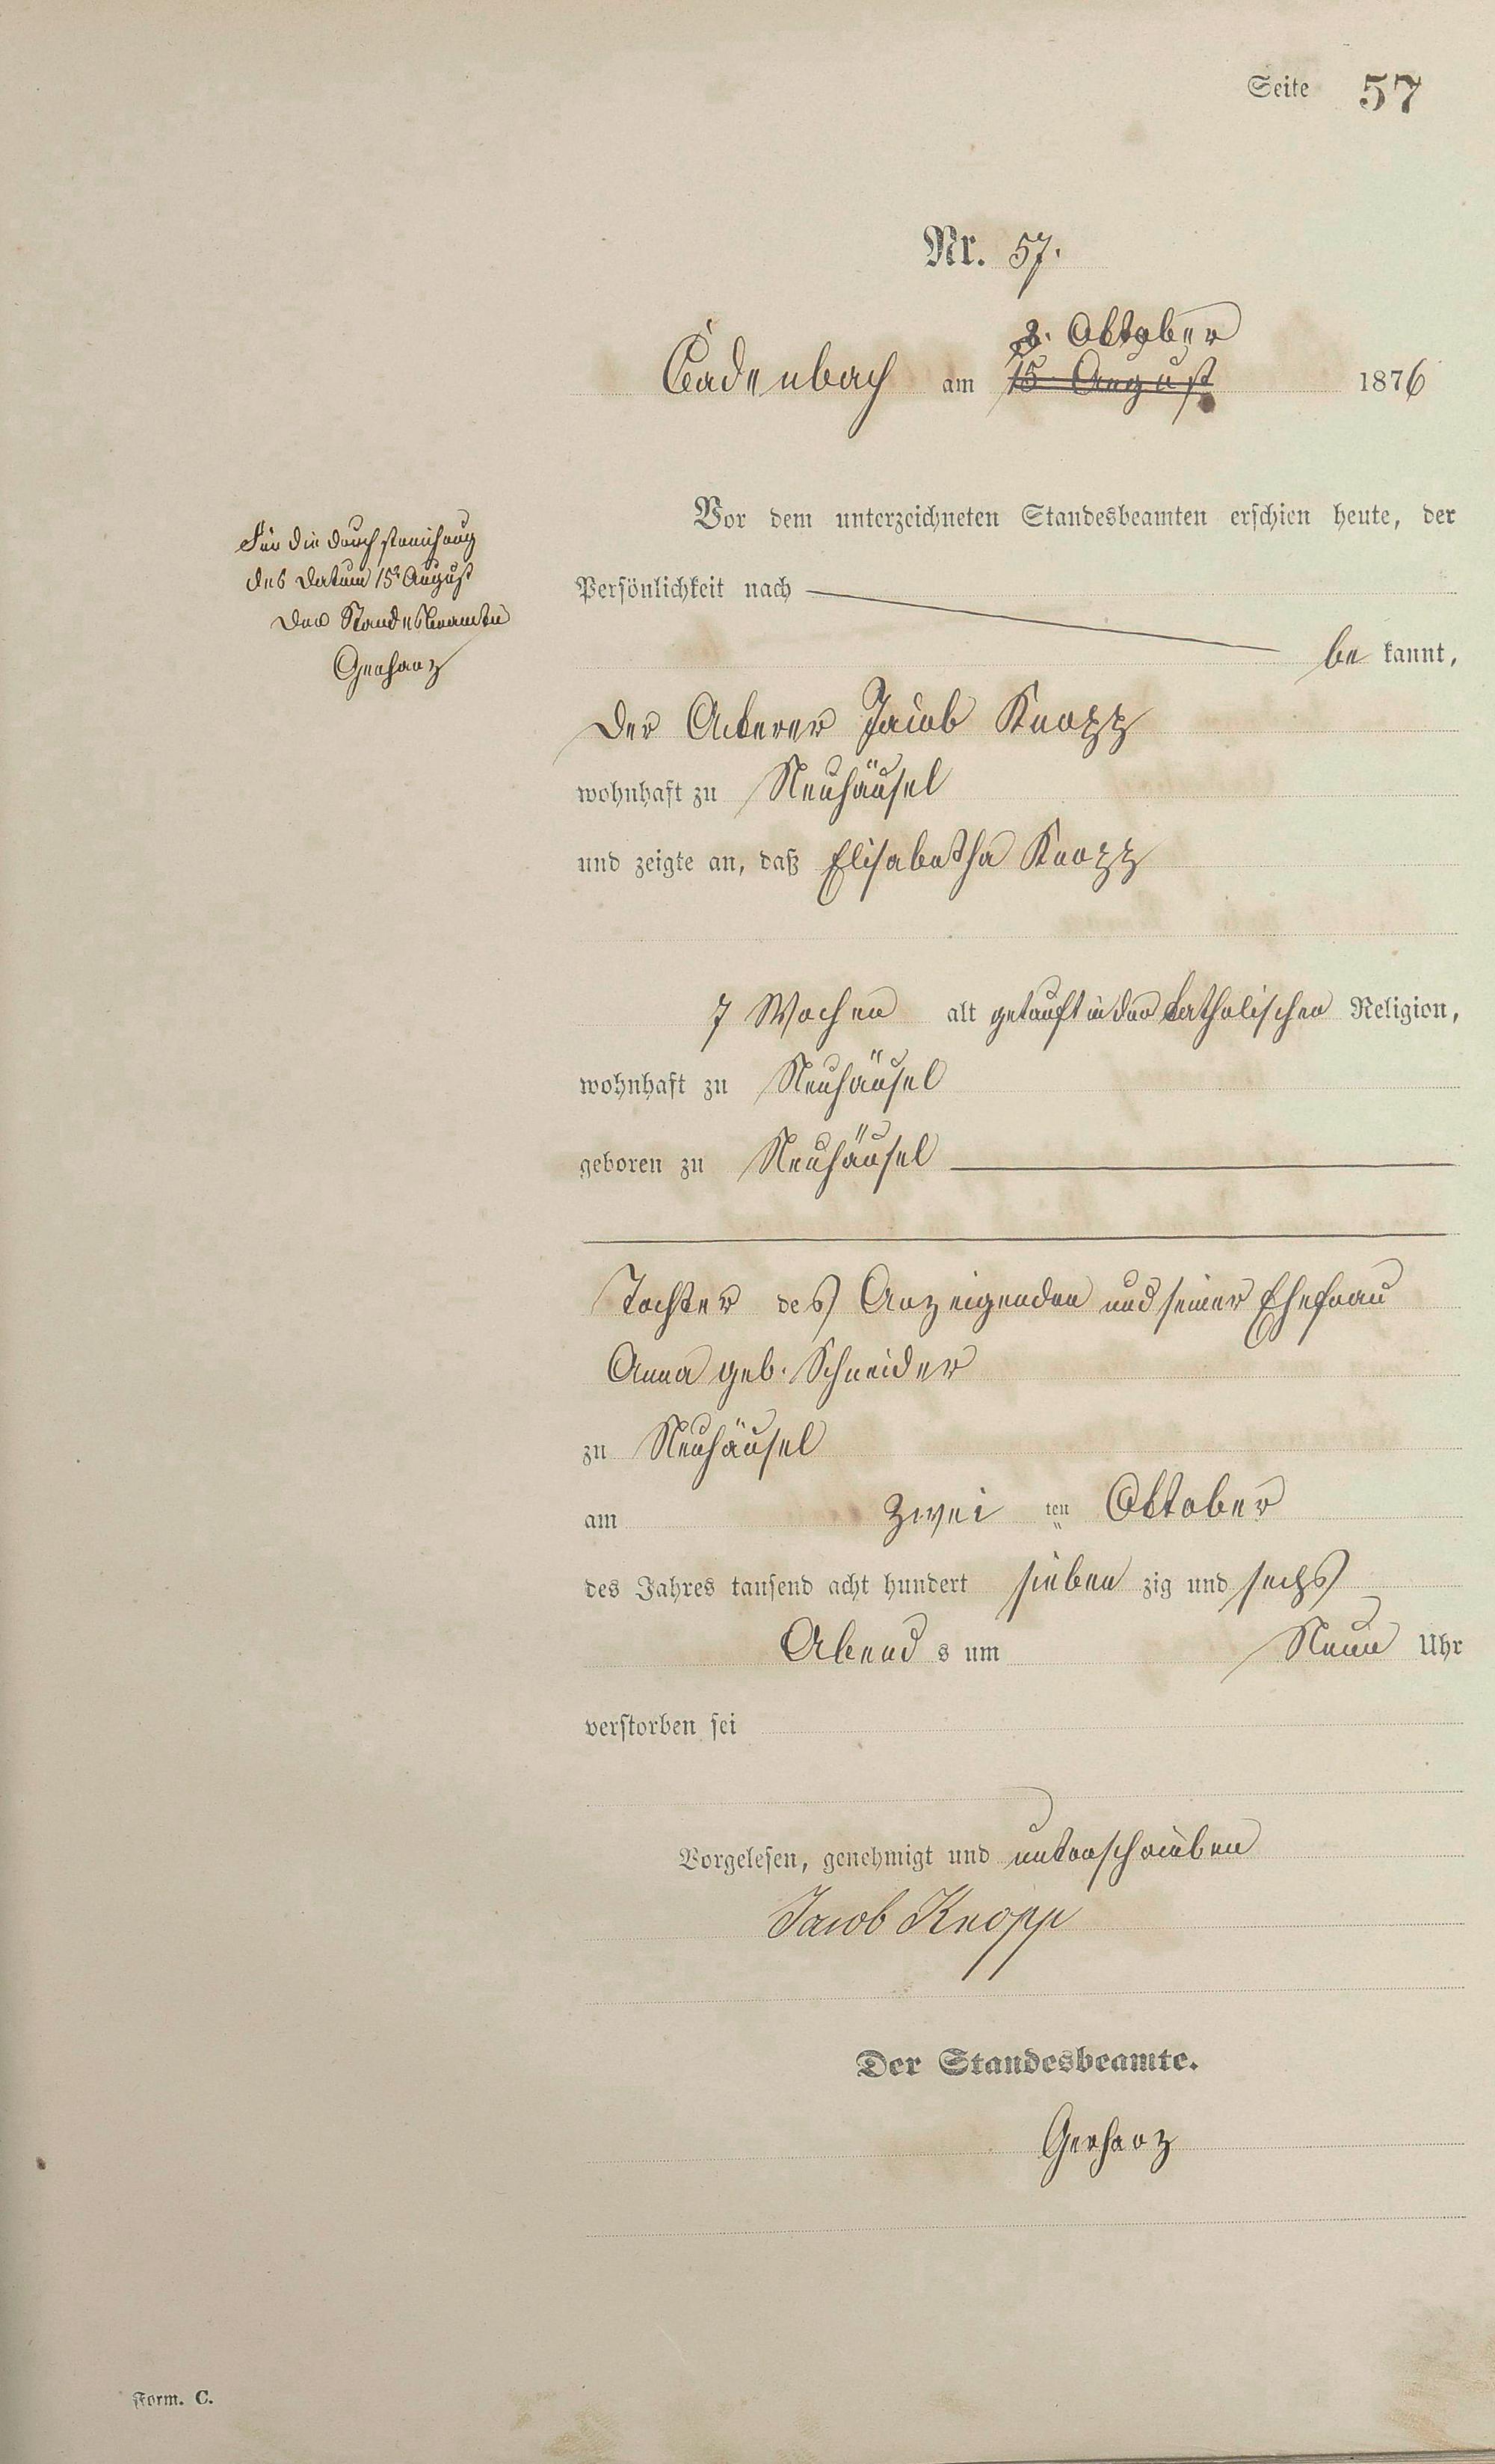 Seite 57
Nr. 57.
3. Oktober
Cadenbach am 15 August 1876
Für die durchstreichung
des Datum 15t August
Der Standesbeamte
Gerharz
Vor dem unterzeichneten Standesbeamten erschien heute, der
Persönlichkeit nach
be kannt,
der Ackerer Jacob Knopp
wohnhaft zu Neuhäusel
und zeigte an, daß Elisabetha Knopp
7 Wochen alt getauft in der katholischen Religion,
wohnhaft zu Neuhäusel
geboren zu Neuhäusel
Tochter des Anzeigenden und seiner Ehefrau
Anna geb. Schneider
zu Neuhäusel
am zwei ten Oktober
des Jahres tausend acht hundert sieben zig und sechs
Abend s um Neun Uhr
verstorben sei
Vorgelesen, genehmigt und unterschrieben
Jacob Knopp
Der Standesbeamte.
Gerharz
Form. C.